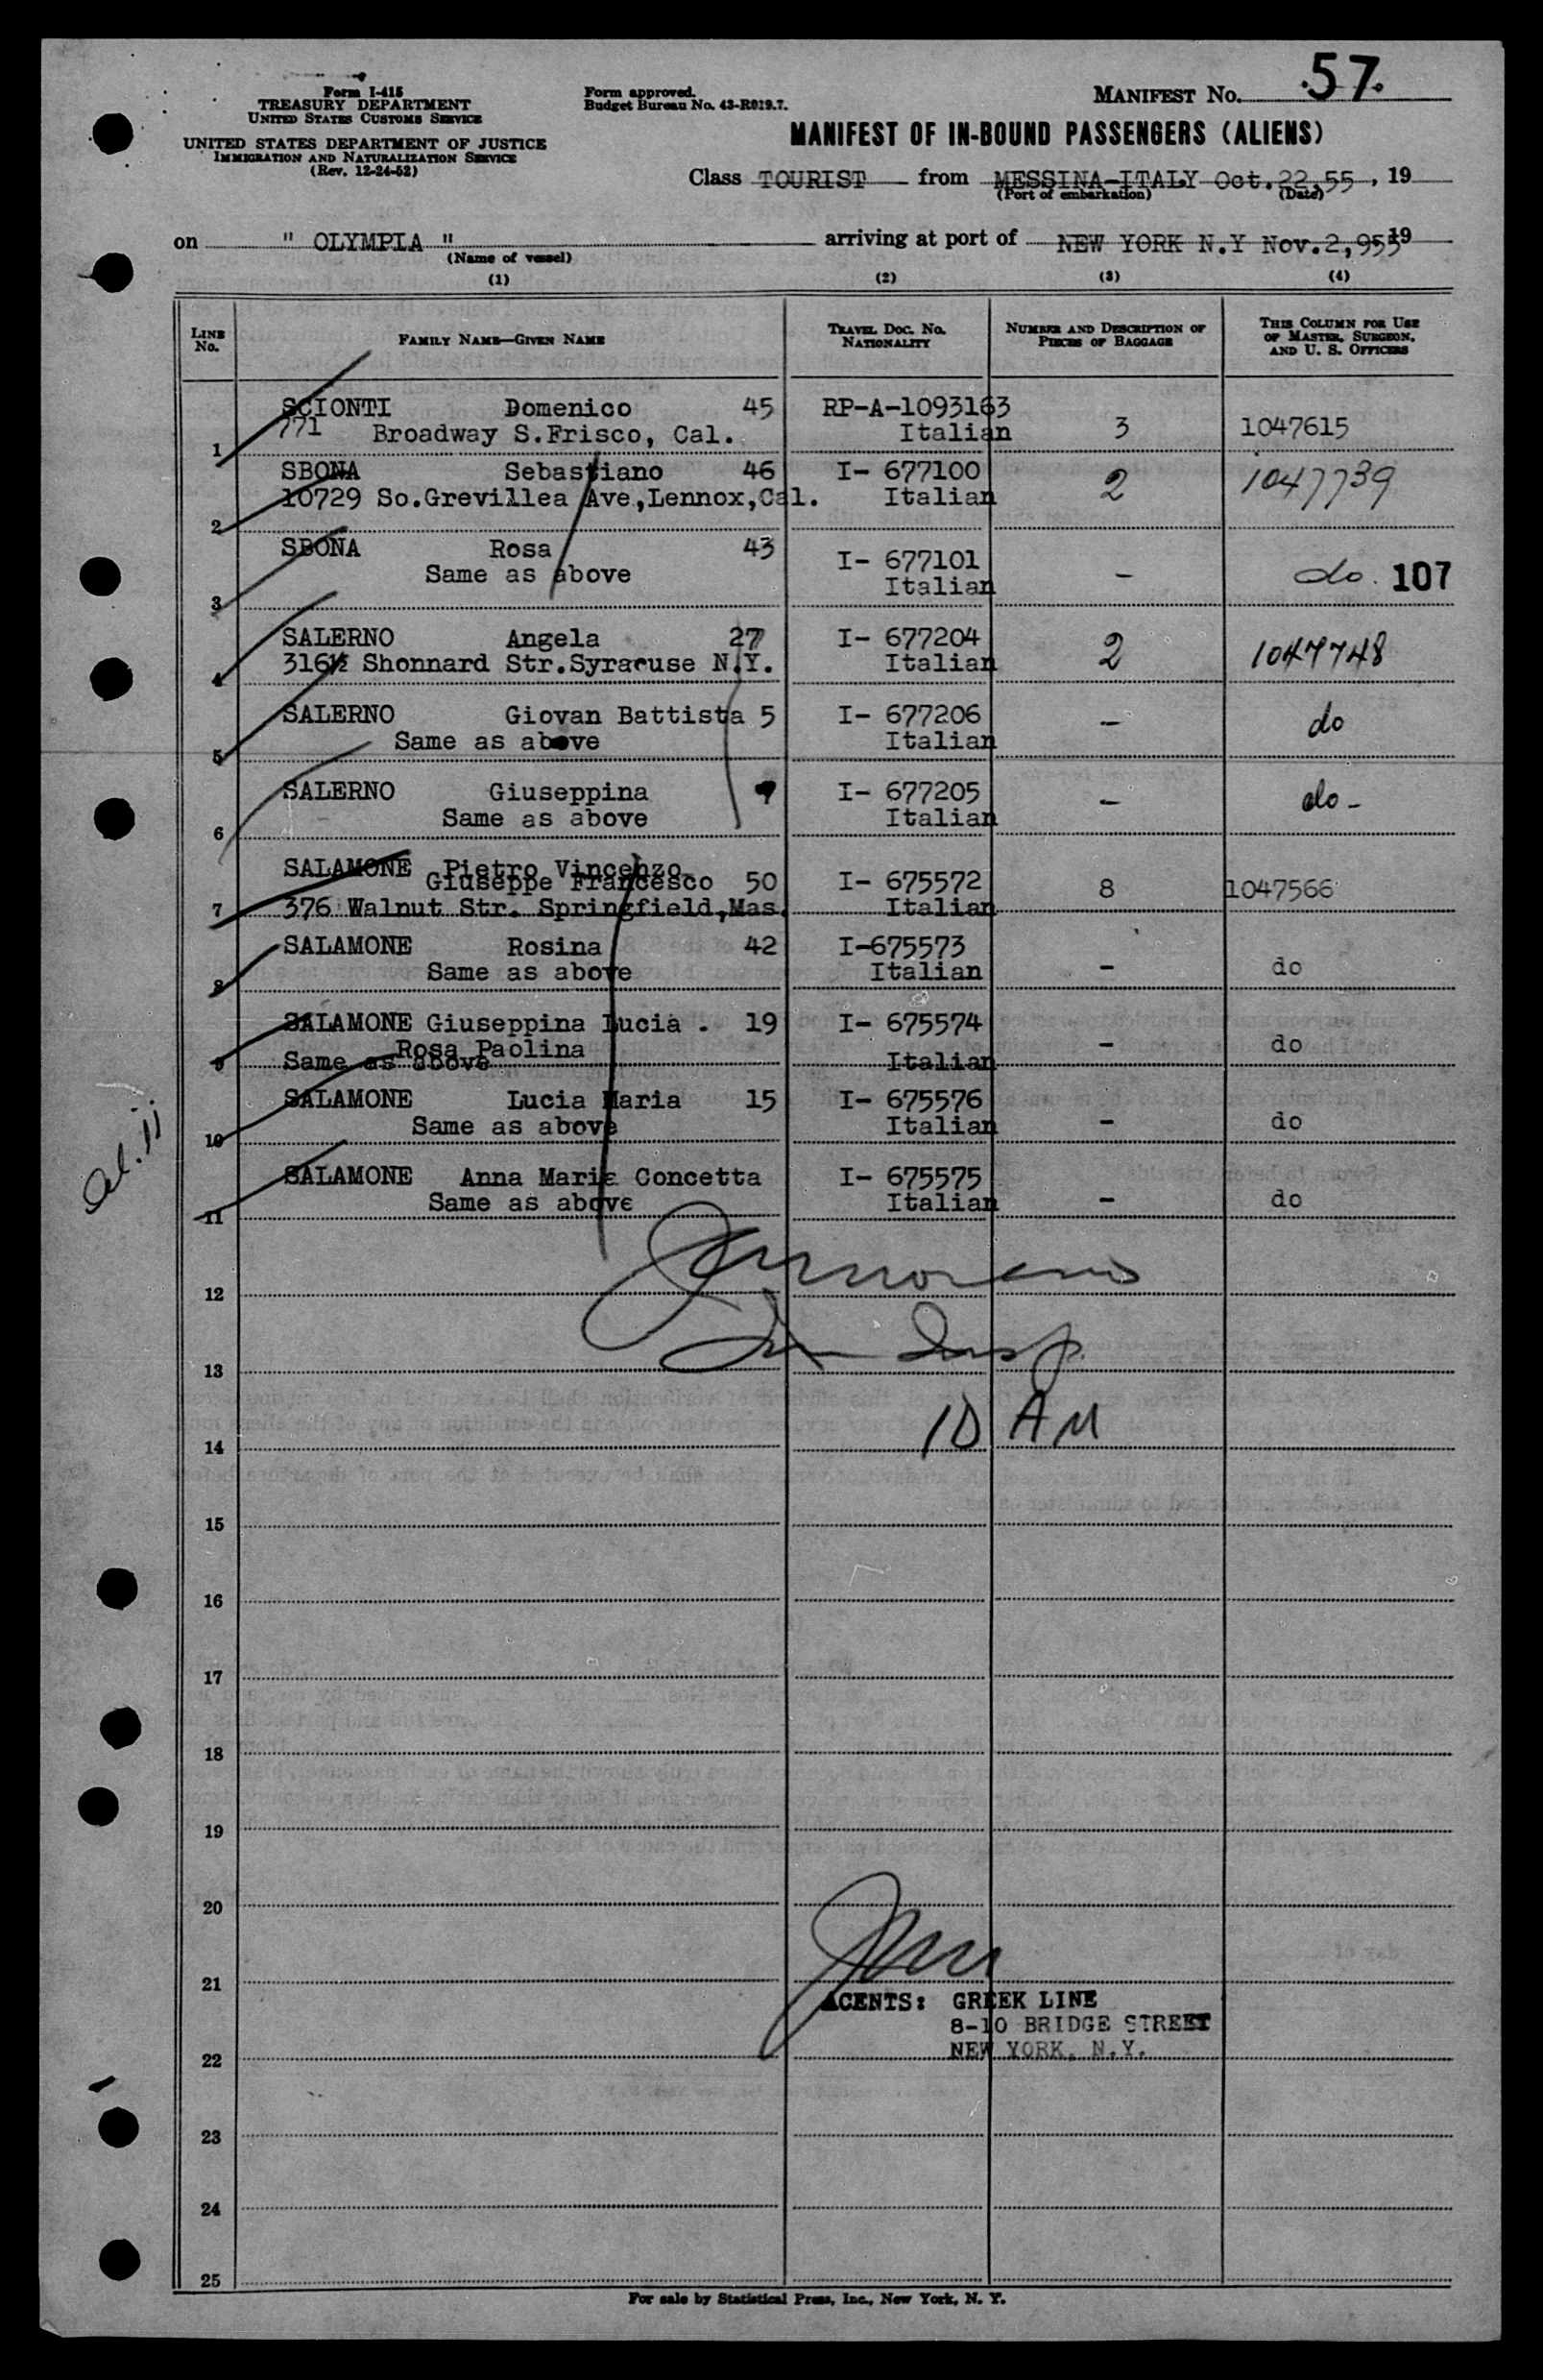 Form I-415
TREASURY DEPARTMENT
UNITED STATES CUSTOMS SERVICE
UNITED STATES DEPARTMENT OF JUSTICE
IMMIGRATION AND NATURALIZATION SERVICE
(Rev. 12-24-52)
Form approved.
Budget Bureau No. 43-R019.7.
MANIFEST No. 57.
MANIFEST OF IN-BOUND PASSENGERS (ALIENS)
Class TOURIST from MESSINA-ITALY Oct.22,55, 19
(Port of embarkation) (Date)
on " OLYMPIA " arriving at port of NEW YORK N.Y Nov.2,955 19
(Name of vessel)
(1) (2) (3) (4)
LINE No. FAMILY NAME—GIVEN NAME TRAVEL DOC. No. NATIONALITY NUMBER AND DESCRIPTION OF PIECES OF BAGGAGE THIS COLUMN FOR USE OF MASTER, SURGEON, AND U. S. OFFICERS
SCIONTI Domenico 45 RP-A-1093163
1 771 Broadway S.Frisco, Cal. Italian 3 1047615
SBONA Sebastiano 46 I- 677100
2 10729 So.Grevillea Ave,Lennox,Cal. Italian 2 1047739
SBONA Rosa 43 I- 677101
3 Same as above Italian - do. 107
SALERNO Angela 27 I- 677204
4 316½ Shonnard Str.Syracuse N.Y. Italian 2 1047748
SALERNO Giovan Battista 5 I- 677206
5 Same as above Italian - do
SALERNO Giuseppina I- 677205
6 Same as above Italian - do-
SALAMONE Pietro Vincenzo
Giuseppe Francesco 50 I- 675572
7 376 Walnut Str. Springfield,Mas. Italian 8 1047566
SALAMONE Rosina 42 I-675573
8 Same as above Italian - do
SALAMONE Giuseppina Lucia . 19 I- 675574
Rosa Paolina
9 Same as above Italian - do
SALAMONE Lucia Maria 15 I- 675576
10 Same as above Italian - do
SALAMONE Anna Maria Concetta I- 675575
11 Same as above Italian - do
12
13
10 AM
14
15
16
17
18
19
20
21
AGENTS: GREEK LINE
8-10 BRIDGE STREET
22 NEW YORK, N.Y.
23
24
25
For sale by Statistical Press, Inc., New York, N. Y.